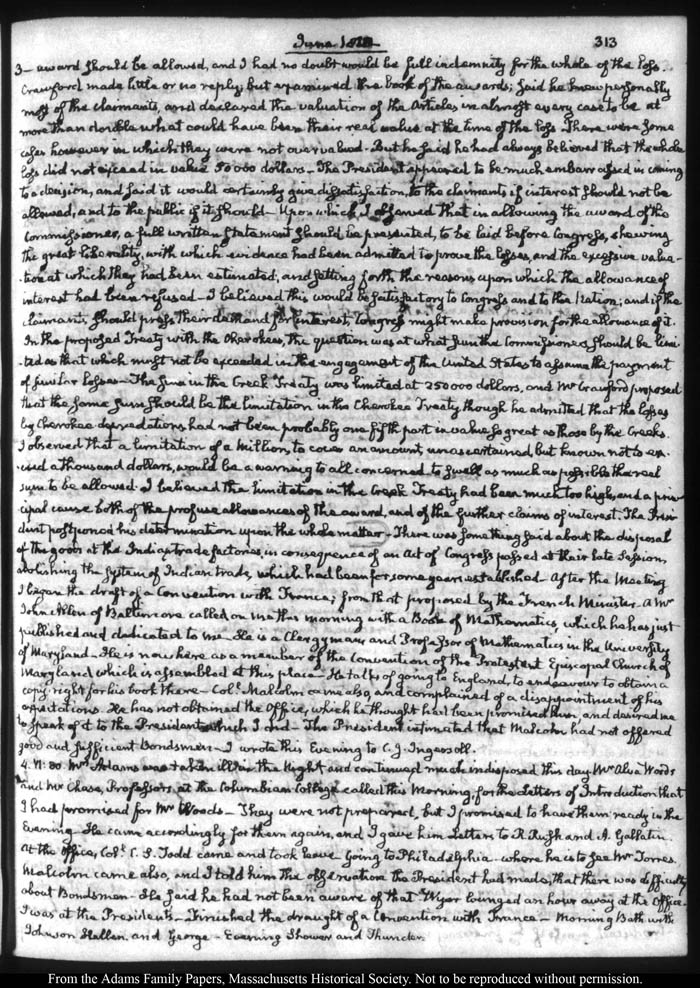 June 1822
313
3_ award should be allowed, and I had no doubt would be full indemnity for the whole of the loss.
Crawford made little or no reply; but examined the book of the awards; said he knew personally
most of the claimants, and declared the valuation of the Articles in almost every case to be at
more than double what could have been their real value at the time of the loss. There were some
cases however in which they were not overvalued. But he said he had always believed that the whole
loss did not exceed in value 50000 dollars_ The President appeared to be much embarrassed in coming
to a decision, and said it would certainly give dissatisfaction, to the claimants if interest should not be
allowed, and to the public if it should_ Upon which, I observed that in allowing the award of the
Commissioner, a full written Statement should be presented, to be laid before Congress, shewing
the great liberality, with which evidence had been admitted to prove the losses, and the excessive valua-
tion at which they had been estimated, and setting forth the reasons upon which the allowance of
interest had been refused_ I believed this would be satisfactory to Congress and to the Nation; and if the
claimants, should press their demand for interest, Congress might make provision for the allowance of it.
In the proposed Treaty with the Cherokees, the question was at what sum the Commissioners should be limi-
ted as that which must not be exceeded in the engagement of the United States to assume the payment
of similar losses_ The sum in the Creek Treaty was limited at 250000 dollars, and Mr Crawford proposed
that the same sum should be the limitation in the Cherokee Treaty though he admitted that the losses
by Cherokee depredations, had not been probably one fifth part in value so great as those by the Creeks.
I observed that a limitation of a Million, to cover an amount, unascertained, but known not to ex-
ceed a thousand dollars, would be a warning to all concerned to swell as much as possible the real
sum to be allowed. I believed the limitation in the Creek Treaty had been much too high, and a prin-
cipal cause both of the profuse allowances of the award, and of the further claims of interest. The Presi-
dent postponed his determination upon the whole matter_ There was something said about the disposal
of the goods at the Indian trade factories, in consequence of an Act of Congress passed at their late Session,
abolishing the System of Indian trade, which had been for some years established_ After the Meeting
I began the draft of a Convention with France; from that proposed by the French Minister_ A Mr
John Allen of Baltimore called on me this morning with a Book of Mathematics, which he has just
published and dedicated to me_ He is a Clergyman, and Professor of Mathematics in the University
of Maryland_ He is now here as a member of the Convention of the Protestant Episcopal Church of
Maryland which is assembled at this place_ He talks of going to England, to endeavour to obtain a
copy right for his book there_ Coll. Malcolm came also, and complained of a disappointment of his
expectations. He has not obtained the Office, which he thought had been promised him and desired me
to speak of it to the President which I did_ The President intimated that Malcolm had not offered
good and sufficient Bondsmen_ I wrote this Evening to C. J. Ingersoll.
4. VI: 30. Mrs Adams was taken ill in the Night and continued much indisposed this day. Mr Alva Woods
and Mr Chase, Professors, at the Columbian College called this Morning, for the Letters of Introduction that
I had promised for Mr Woods_ They were not prepared, but I promised to have them ready in the
Evening_ He came accordingly for them again, and I gave him Letters to R. Rush and A. Gallatin.
At the Office, Coll. C. S. Todd came and took leave going to Philadelphia where he is to see Mr Torres.
Malcolm came also, and I told him the observation the President had made, that there was difficulty
about Bondsmen_ He said he had not been aware of that_ Wyer lounged an hour away at the Office.
I was at the Presidents_ Finished the draught of a Convention with France_ Morning Bath with
Johnson Hellen, and George_ Evening Shower and Thunder.
From the Adams Family Papers, Massachusetts Historical Society. Not to be reproduced without permission.